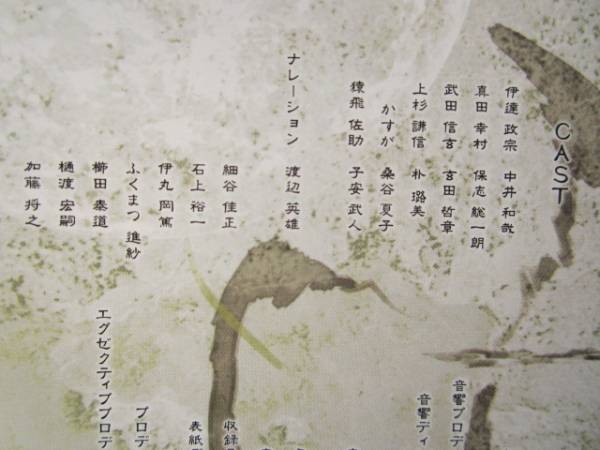 CAST
伊達 政宗 中井 和哉
真田 幸村 保志 総一朗
武田 信玄 玄田 哲章
上杉 謙信 朴 璐美
かすが 桑谷 夏子
猿飛 佐助 子安 武人
ナレーション 渡辺 英雄
細谷 佳正
石上 裕一
伊丸岡 篤
ふくまつ 進紗
櫛田 泰道
樋渡 宏嗣
加藤 将之
音響プロデ
音響ディ
収録
表紙
プロデ
エグゼクティブプロデ